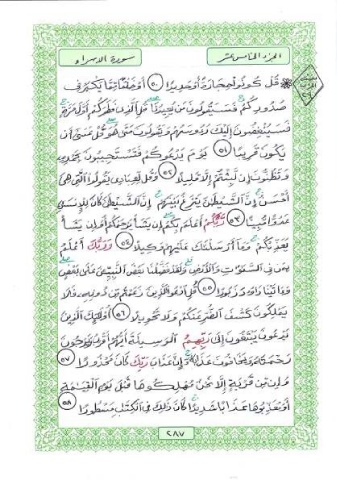 الجزء الخامس عشر
سورة الإسراء
قُلْ كُونُوا حِجَارَةً أَوْ حَدِيدًا ٥٠ أَوْ خَلْقًا مِّمَّا يَكْبُرُ فِي
صُدُورِكُمْ فَسَيَقُولُونَ مَن يُعِيدُنَا قُلِ الَّذِي فَطَرَكُمْ أَوَّلَ مَرَّةٍ
فَسَيُنْغِضُونَ إِلَيْكَ رُءُوسَهُمْ وَيَقُولُونَ مَتَى هُوَ قُلْ عَسَى أَن
يَكُونَ قَرِيبًا ٥١ يَوْمَ يَدْعُوكُمْ فَتَسْتَجِيبُونَ بِحَمْدِهِ
وَتَظُنُّونَ إِن لَّبِثْتُمْ إِلَّا قَلِيلًا ٥٢ وَقُل لِّعِبَادِي يَقُولُوا الَّتِي هِيَ
أَحْسَنُ إِنَّ الشَّيْطَانَ يَنزَغُ بَيْنَهُمْ إِنَّ الشَّيْطَانَ كَانَ لِلْإِنسَانِ
عَدُوًّا مُّبِينًا ٥٣ رَّبُّكُمْ أَعْلَمُ بِكُمْ إِن يَشَأْ يَرْحَمْكُمْ أَوْ إِن يَشَأْ
يُعَذِّبْكُمْ وَمَا أَرْسَلْنَاكَ عَلَيْهِمْ وَكِيلًا ٥٤ وَرَبُّكَ أَعْلَمُ
بِمَن فِي السَّمَوَاتِ وَالْأَرْضِ وَلَقَدْ فَضَّلْنَا بَعْضَ النَّبِيِّينَ عَلَى بَعْضٍ
وَءَاتَيْنَا دَاوُدَ زَبُورًا ٥٥ قُلِ ادْعُوا الَّذِينَ زَعَمْتُم مِّن دُونِهِ فَلَا
يَمْلِكُونَ كَشْفَ الضُّرِّ عَنكُمْ وَلَا تَحْوِيلًا ٥٦ أُولَئِكَ الَّذِينَ
يَدْعُونَ يَبْتَغُونَ إِلَى رَبِّهِمُ الْوَسِيلَةَ أَيُّهُمْ أَقْرَبُ وَيَرْجُونَ
رَحْمَتَهُ وَيَخَافُونَ عَذَابَهُ إِنَّ عَذَابَ رَبِّكَ كَانَ مَحْذُورًا ٥٧
وَإِن مِّن قَرْيَةٍ إِلَّا نَحْنُ مُهْلِكُوهَا قَبْلَ يَوْمِ الْقِيَامَةِ
أَوْ مُعَذِّبُوهَا عَذَابًا شَدِيدًا كَانَ ذَلِكَ فِي الْكِتَابِ مَسْطُورًا ٥٨
٢٨٧